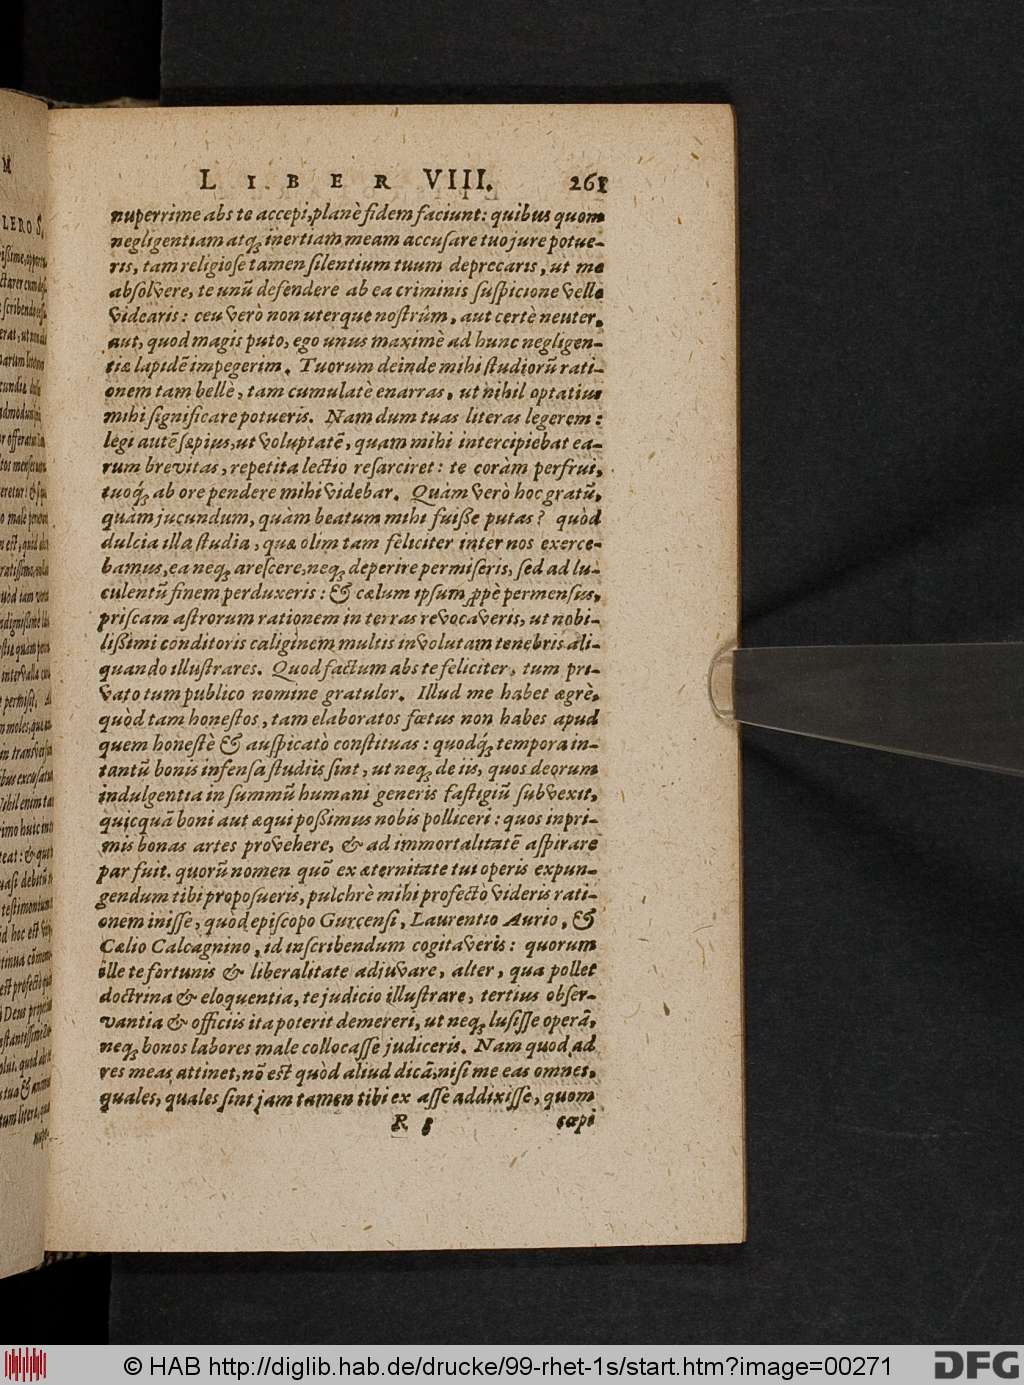 LIBER VIII. 261
nuperrime abs te accepi, planè fidem faciunt: quibus quom
negligentiam atq; inertiam meam accusare tuo jure potue-
ris, tam religiose tamen silentium tuum deprecaris, ut me
absolvere, te unũ defendere ab ea criminis suspicione velle
videaris: ceu verò non uterque nostrûm, aut certè neuter,
aut, quod magis puto, ego unus maximè ad hunc negligen-
tiæ lapidẽ impegerim. Tuorum deinde mihi studiorũ rati-
onem tam bellè, tam cumulatè enarras, ut nihil optatius
mihi significare potueris. Nam dum tuas literas legerem:
legi autẽ sæpius, ut voluptatẽ, quam mihi intercipiebat ea-
rum brevitas, repetita lectio resarciret: te coràm perfrui,
tuoq́; ab ore pendere mihi videbar. Quàm verò hoc gratũ,
quàm jucundum, quàm beatum mihi fuisse putas? quòd
dulcia illa studia, quæ olim tam fèliciter inter nos exerce-
bamus, ea neq; arescere, neq; deperire permiseris, sed ad lu-
culentũ finem perduxeris: & cælum ipsum ꝓpè permensus,
priscam astrorum rationem in terras revocaveris, ut nobi-
lissimi conditoris caliginem multis involutam tenebris ali-
quando illustrares. Quod factum abs te feliciter, tum pri-
vato tum publico nomine gratulor. Illud me habet ægrè,
quòd tam honestos, tam elaboratos fœtus non habes apud
quem honestè & auspicatò constituas: quodq́; tempora in-
tantũ bonis infensa studiis sint, ut neq; de iis, quos deorum
indulgentia in summũ humani generis fastigiũ subvexit,
quicquã boni aut æqui possimus nobis polliceri: quos inpri-
mis bonas artes provehere, & ad immortalitatẽ aspirare
par fuit. quorũ nomen quõ ex æternitate tui operis expun-
gendum tibi proposueris, pulchrè mihi profectò videris rati-
onem inisse, quòd episcopo Gurcensi, Laurentio Aurio, &
Cælio Calcagnino, id inscribendum cogitaveris: quorum
ille te fortunis & liberalitate adjuvare, alter, qua pollet
doctrina & eloquentia, te judicio illustrare, tertius obser-
vantia & officiis ita poterit demereri, ut neq; lusisse operã,
neq; bonos labores male collocasse judiceris. Nam quod ad
res meas attinet, nõ est quòd aliud dicã, nisi me eas omnes,
quales, quales sint jam tamen tibi ex asse addixisse, quom
R 5 cæpi
© HAB http://diglib.hab.de/drucke/99-rhet-1s/start.htm?image=00271
DFG